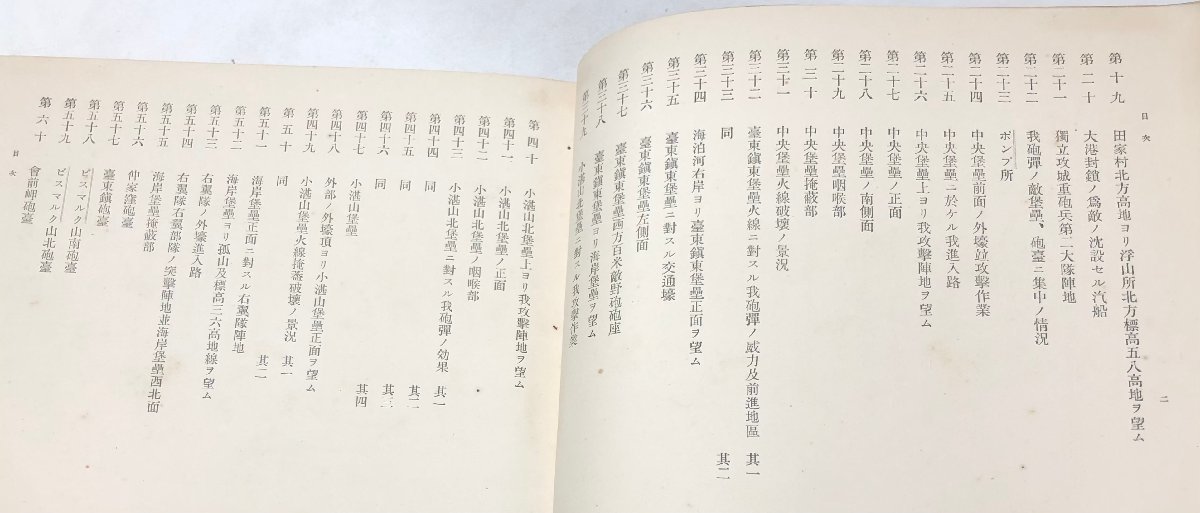 目次
二
第十九 田家村北方高地ヨリ浮山所北方標高五八高地ヲ望ム
第二十 大港封鎖ノ爲敵ノ沈設セル汽船
第二十一 獨立攻城重砲兵第二大隊陣地
第二十二 我砲彈ノ敵堡壘、砲臺ニ集中ノ情況
第二十三 ポンプ所
第二十四 中央堡壘前面ノ外壕竝攻擊作業
第二十五 中央堡壘ニ於ケル我進入路
第二十六 中央堡壘上ヨリ我攻擊陣地ヲ望ム
第二十七 中央堡壘ノ正面
第二十八 中央堡壘ノ南側面
第二十九 中央堡壘咽喉部
第三十 中央堡壘掩蔽部
第三十一 中央堡壘火線破壞ノ景況
第三十二 臺東鎭東堡壘火線ニ對スル我砲彈ノ威力及前進地區 其一
第三十三 同 其二
第三十四 海泊河右岸ヨリ臺東鎭東堡壘正面ヲ望ム
第三十五 臺東鎭東堡壘ニ對スル交通壕
第三十六 臺東鎭東堡壘左側面
第三十七 臺東鎭東堡壘西方百米敵野砲砲座
第三十八 臺東鎭東堡壘ヨリ海岸堡壘ヲ望ム
第三十九 小湛山北堡壘ニ對スル我攻擊作業
第四十 小湛山北堡壘上ヨリ我攻擊陣地ヲ望ム
第四十一 小湛山北堡壘ノ正面
第四十二 小湛山北堡壘ノ咽喉部
第四十三 小湛山北堡壘ニ對スル我砲彈ノ効果 其一
第四十四 同 其二
第四十五 同 其三
第四十六 同 其四
第四十七 小湛山堡壘
第四十八 外部ノ外壕頂ヨリ小湛山堡壘正面ヲ望ム
第四十九 小湛山堡壘火線掩蓋破壞ノ景況 其一
第五十 同 其二
第五十一 海岸堡壘正面ニ對スル右翼隊陣地
第五十二 海岸堡壘ヨリ孤山及標高二六高地線ヲ望ム
第五十三 右翼隊ノ外壕進入路
第五十四 右翼隊右翼部隊ノ突擊陣地竝海岸堡壘西北面
第五十五 海岸堡壘掩蔽部
第五十六 仲家窪砲臺
第五十七 臺東鎭砲臺
第五十八 ビスマルク山南砲臺
第五十九 ビスマルク山北砲臺
第六十 會前岬砲臺
目次